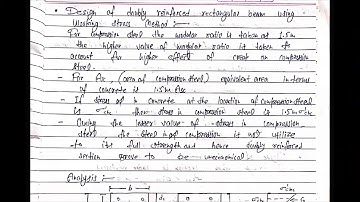 Design of doubly reinforced rectangular beam using
Working stress Method :-
For compression steel the modular ratio is taken as 1.5m
the higher value of modular ratio is taken to
account for higher effects of creep on compression
steel.
- For Asc (area of compression steel) equivalent area in terms
of concrete is 1.5m Asc
- If stress of in concrete at the location of compression steel
is σ'c then stress in compression steel is 1.5m σ'c
- Owing the lesser value of stress in compression
steel, the steel in of compression is not utilize
to its full strength and hence doubly reinforced
section prove to be uneconomical.
Analysis :-
b